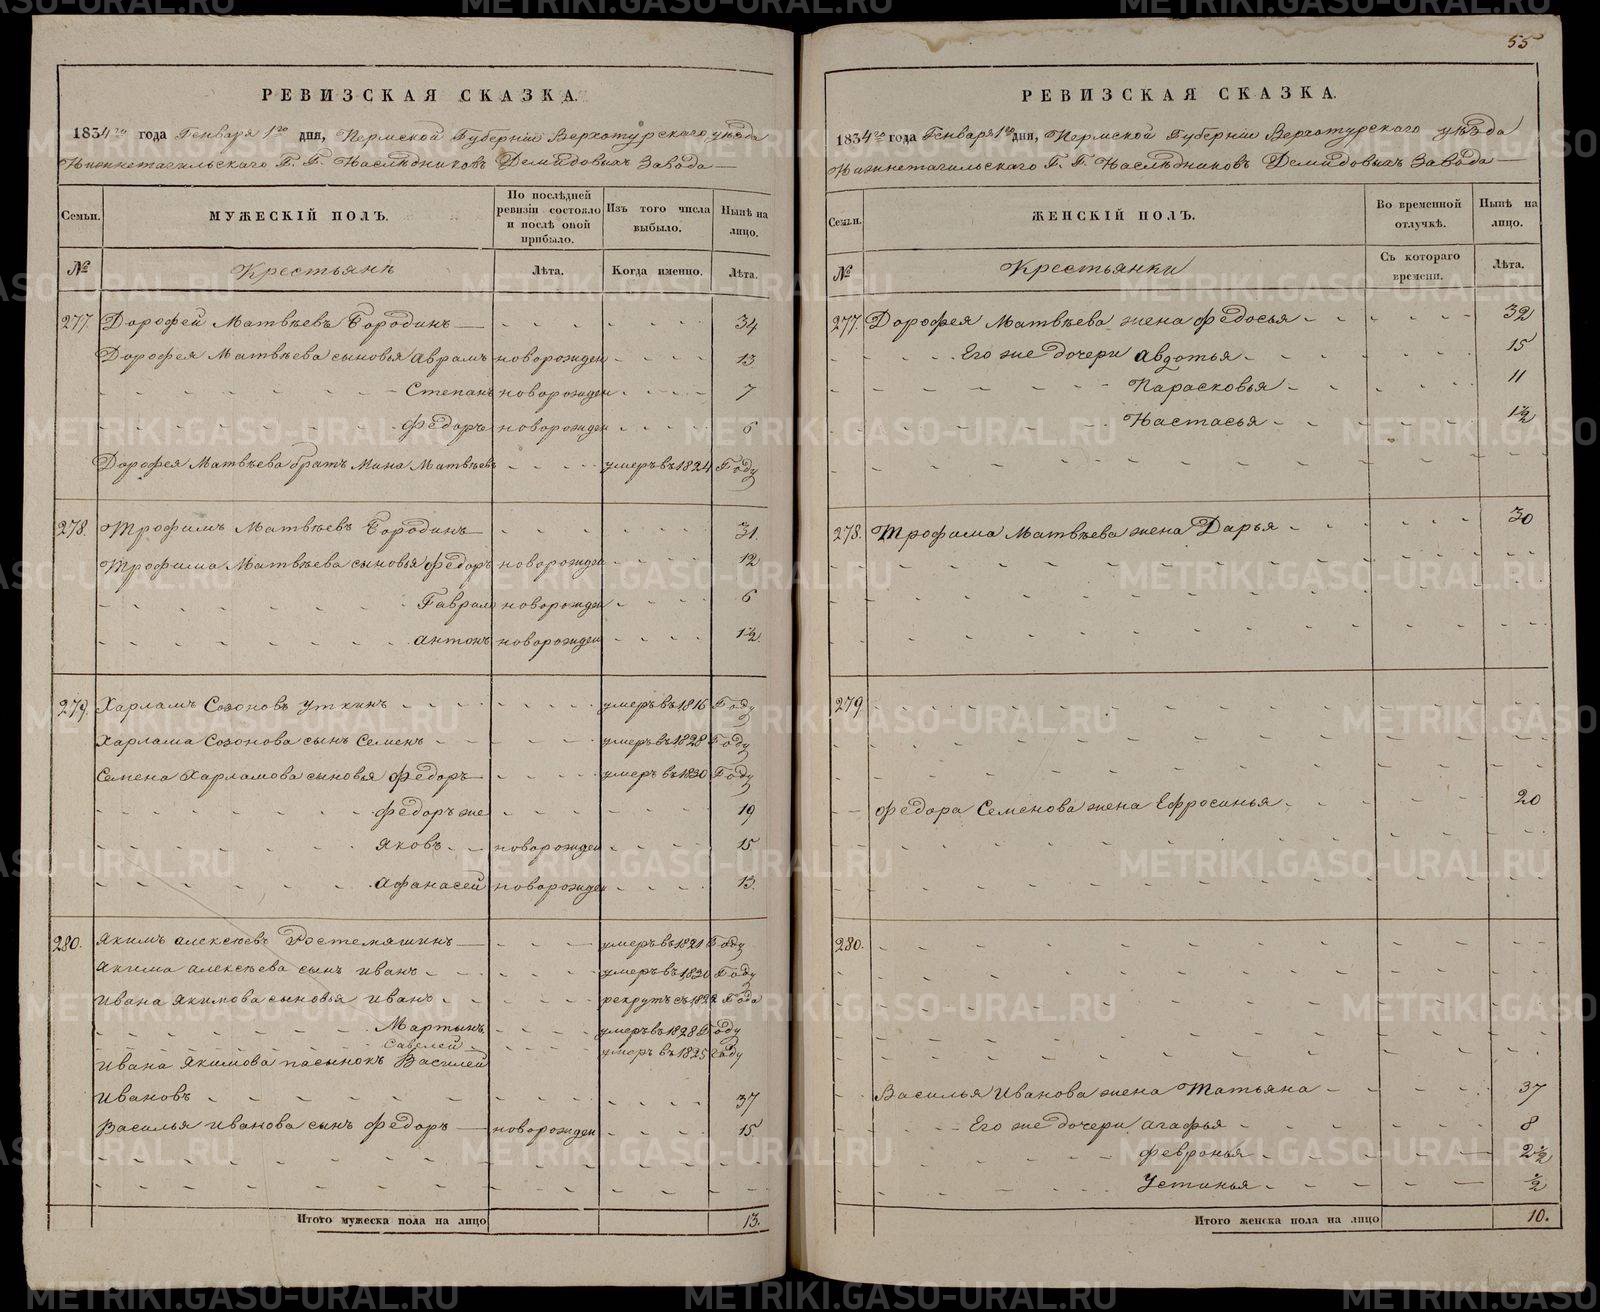 РЕВИЗСКАЯ СКАЗКА.
1834го года Генваря 1го дня, Пермской Губернiи Верхотурскаго уѣзда
Нижнетагильскаго Г. Г. Наслѣдниковъ Демидовыхъ Завода
Семьи. МУЖЕСКIЙ ПОЛЪ. По послѣдней ревизiи состояло и послѣ оной прибыло. Изъ того числа выбыло. Нынѣ на лицо.
№ Крестьянъ Лѣта. Когда именно. Лѣта.
277. Дорофей Матвѣевъ Бородинъ 34
Дорофея Матвѣева сыновья Аврамъ новорожден 13
Степанъ новорожден 7
Федоръ новорожден 6
Дорофея Матвѣева братъ Мина Матвѣевъ умеръ въ 1824 Году
278. Трофимъ Матвѣевъ Бородинъ 31.
Трофима Матвѣева сыновья Федоръ новорожден 12
Гаврило новорожден 6
Антонъ новорожден 1½.
279. Харламъ Созоновъ Уткинъ умеръ въ 1816 Году
Харлама Созонова сынъ Семенъ умеръ въ 1828 Году
Семена Харламова сыновья Федоръ умеръ въ 1830 Году
Федоръ же 19
Яковъ новорожден 15
Афанасей новорожден 13.
280. Якимъ Алексѣевъ умеръ въ 1821 Году
Акима Алексѣева сынъ Иванъ умеръ въ 1830 Году
Ивана Якимова сыновья Иванъ рекрутъ съ 1822 Года
Мартынъ умеръ въ 1828 Году
Савелей умеръ въ 1825 Году
Ивана Якимова пасынокъ Василей
Ивановъ 37
Василья Иванова сынъ Федоръ новорожден 15
Итого мужеска пола на лицо 13.
55
РЕВИЗСКАЯ СКАЗКА.
1834го года Генваря 1го дня, Пермской Губернiи Верхотурскаго уѣзда
Нижнетагильскаго Г. Г. Наслѣдниковъ Демидовыхъ Завода
Семьи. ЖЕНСКIЙ ПОЛЪ. Во временной отлучкѣ. Нынѣ на лицо.
№ Крестьянки Съ котораго времени. Лѣта.
277. Дорофея Матвѣева жена Федосья 32
Его же дочери Авдотья 15
Парасковья 11
Настасья 1½
278. Трофима Матвѣева жена Дарья 30
279.
Федора Семенова жена Ефросинья 20
280.
Василья Иванова жена Татьяна 37
Его же дочери Агафья 8
Февронья 2½
Устинья ½
Итого женска пола на лицо 10.
METRIKI.GASO-URAL.RU